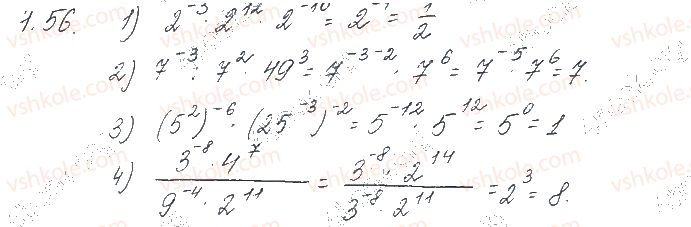 1.56. 1) 2^{-3} · 2^{12} · 2^{-10} = 2^{-1} = \frac{1}{2}
2) 7^{-3} : 7^{2} · 49^{3} = 7^{-3-2} · 7^{6} = 7^{-5} · 7^{6} = 7.
3) (5^{2})^{-6} · (25^{-3})^{-2} = 5^{-12} · 5^{12} = 5^{0} = 1
4) \frac{3^{-8} · 4^{7}}{9^{-4} · 2^{11}} = \frac{3^{-8} · 2^{14}}{3^{-8} · 2^{11}} = 2^{3} = 8.
vshkole.com